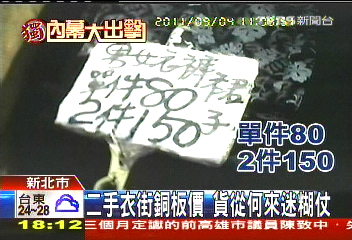 獨內幕大出擊
新聞台
男女衣褲裙
單件80
2件150
子
單件80
2件150
新北市
台東
24~28
二手衣街銅板價 貨從何來迷糊仗
18:12
三個月定讞的前高雄市議員陳致中,矢